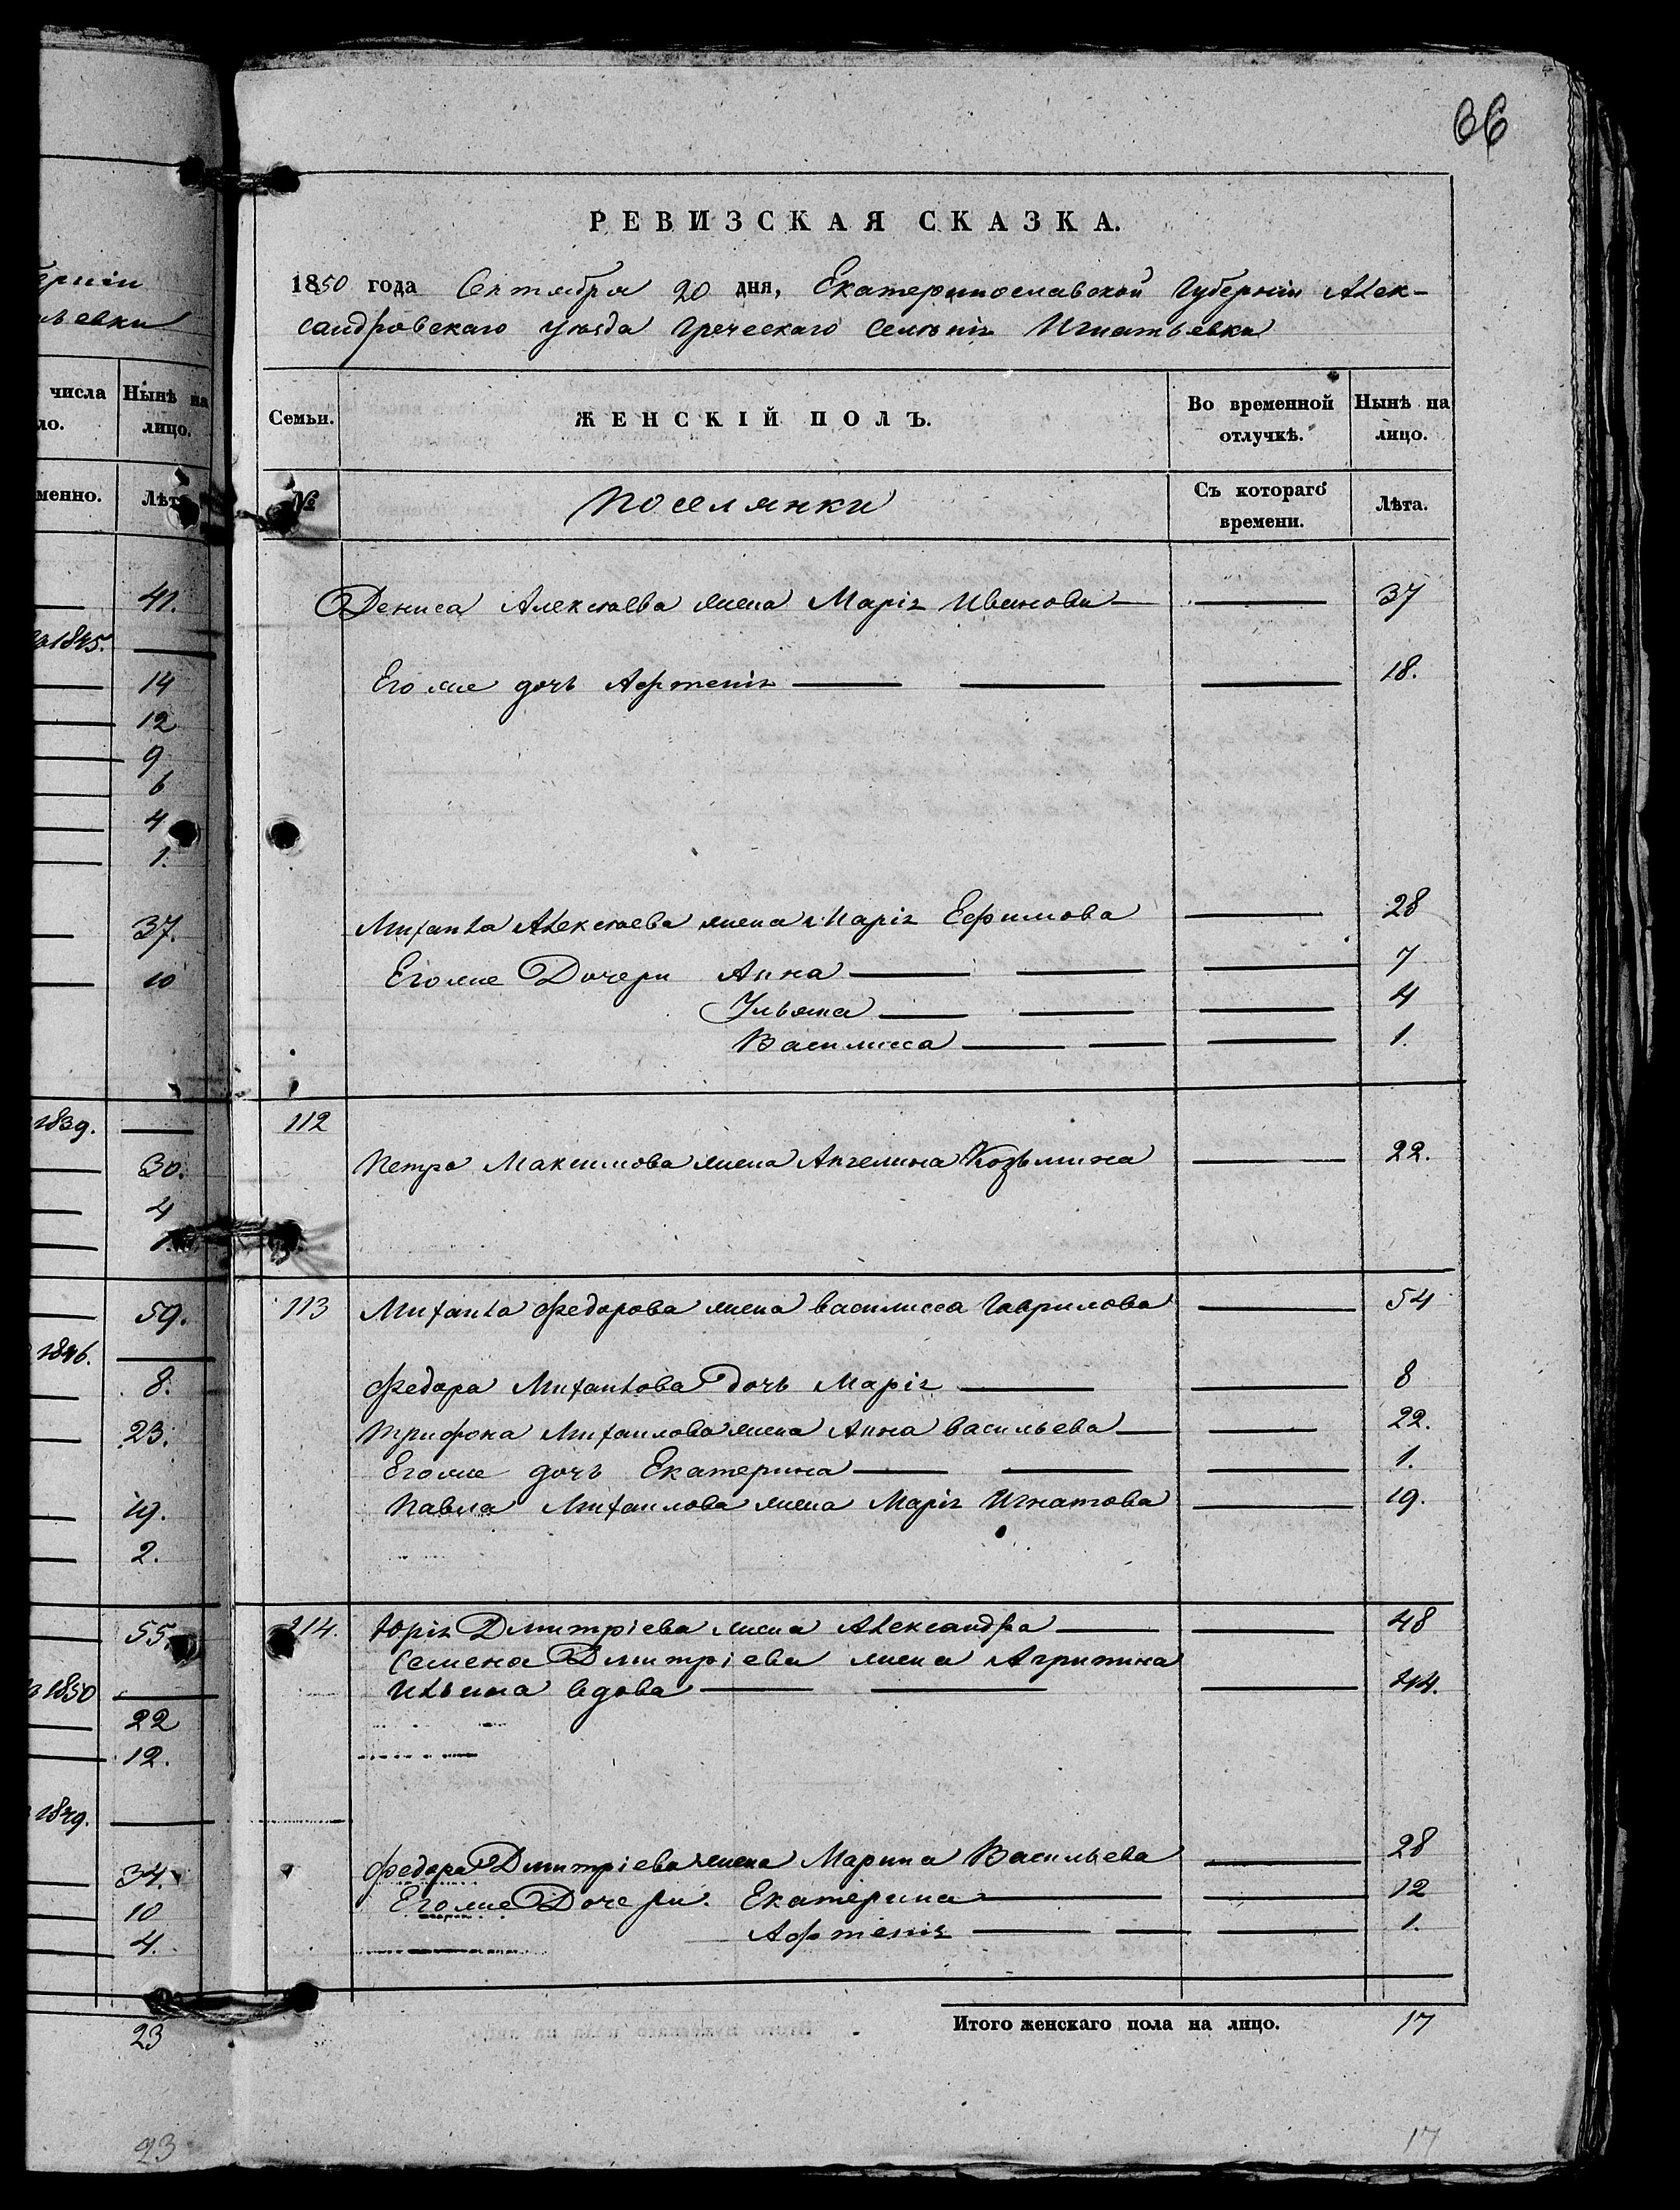 66
РЕВИЗСКАЯ СКАЗКА.
1850 года Октября 20 дня, Екатеринославской Губерніи Алек-
сандровскаго уѣзда Греческаго селенія Игнатьевки
Семьи. ЖЕНСКІЙ ПОЛЪ. Во временной отлучкѣ. Нынѣ на лицо.
№ Поселянки Съ котораго времени. Лѣта.
Дениса Алексѣева жена Марія Иванова 37
Его же дочь Афтенія 18.
Михаила Алексѣева жена Марія Ефимова 28
Его же Дочери Анна 7
Ульяна 4
Василисса 1.
112
Петра Максимова жена Ангелина Козьмина 22.
113 Михаила Федорова жена Василисса Гаврилова 54
Федора Михайлова дочь Марія 8
Трифона Михаилова жена Анна Васильева 22.
Его же дочь Екатерина 1.
Павла Михаилова жена Марія Игнатова 19.
114. Юрія Дмитріева жена Александра 48
Семена Дмитріева жена Агрипина
Ильина вдова 44.
Федора Дмитріева жена Марина Васильева 28
Его же Дочери. Екатерина 12
Афтенія 1.
Итого женскаго пола на лицо. 17
17
числа Нынѣ на
ло. лицо.
менно. Лѣта
41.
1845.
14
12
9
6
4
1.
37.
10
1839.
30.
4
1.
59.
1846.
8.
23.
19.
2.
55.
1850
22
12.
1849.
34.
10
4.
23
23